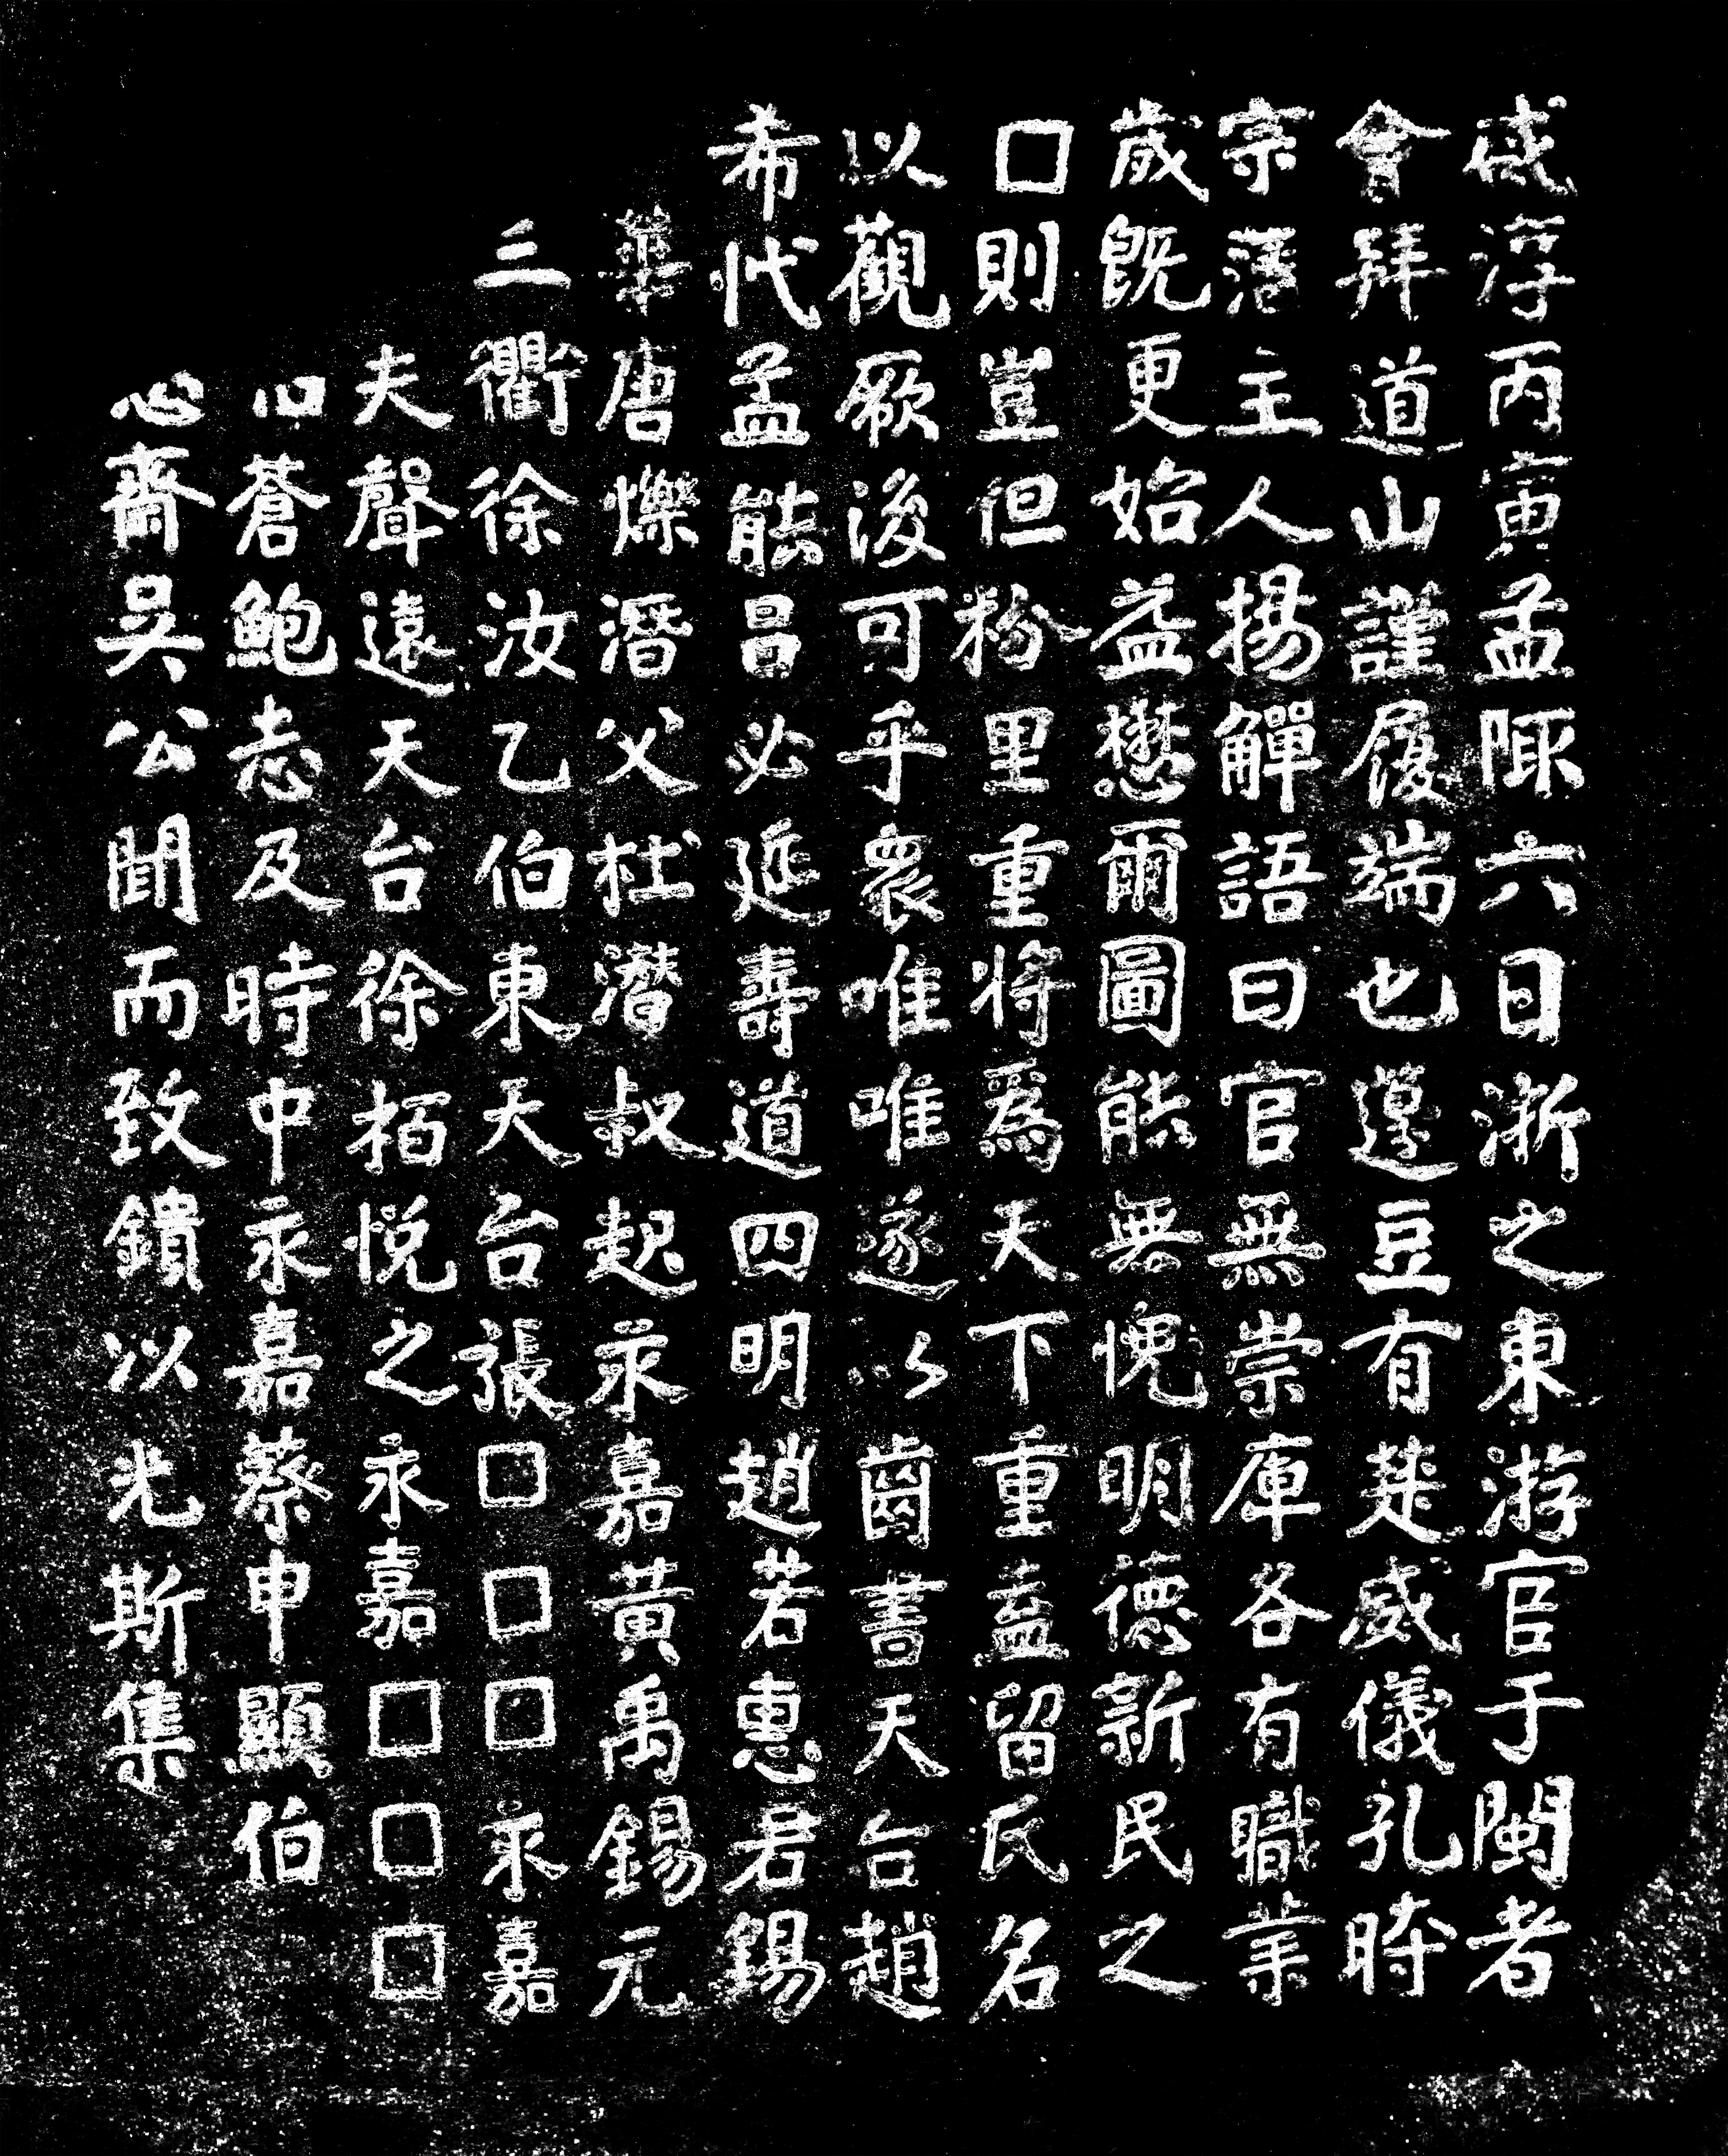 咸淳丙寅孟陬六日浙之東游官于閩者
會拜道山謹履端也籩豆有楚威儀孔時
宗藩主人揚觶語曰官無崇庳各有職業
歲旣更始益懋爾圖能無愧明德新民之
□則豈但枌里重將爲天下重盍留氏名
以觀厥後可乎衆唯唯遂以齒書天台趙
希代孟能吕必延壽道四明趙若惠君錫
華唐爍潛父杜濳叔起永嘉黃禹錫元
三衢徐汝乙伯東天台張□□□永嘉
夫聲遠天台徐栢悅之永嘉□□□
蒼鮑志及時中永嘉蔡申顯伯
心齋吳公聞而致鐀以光斯集